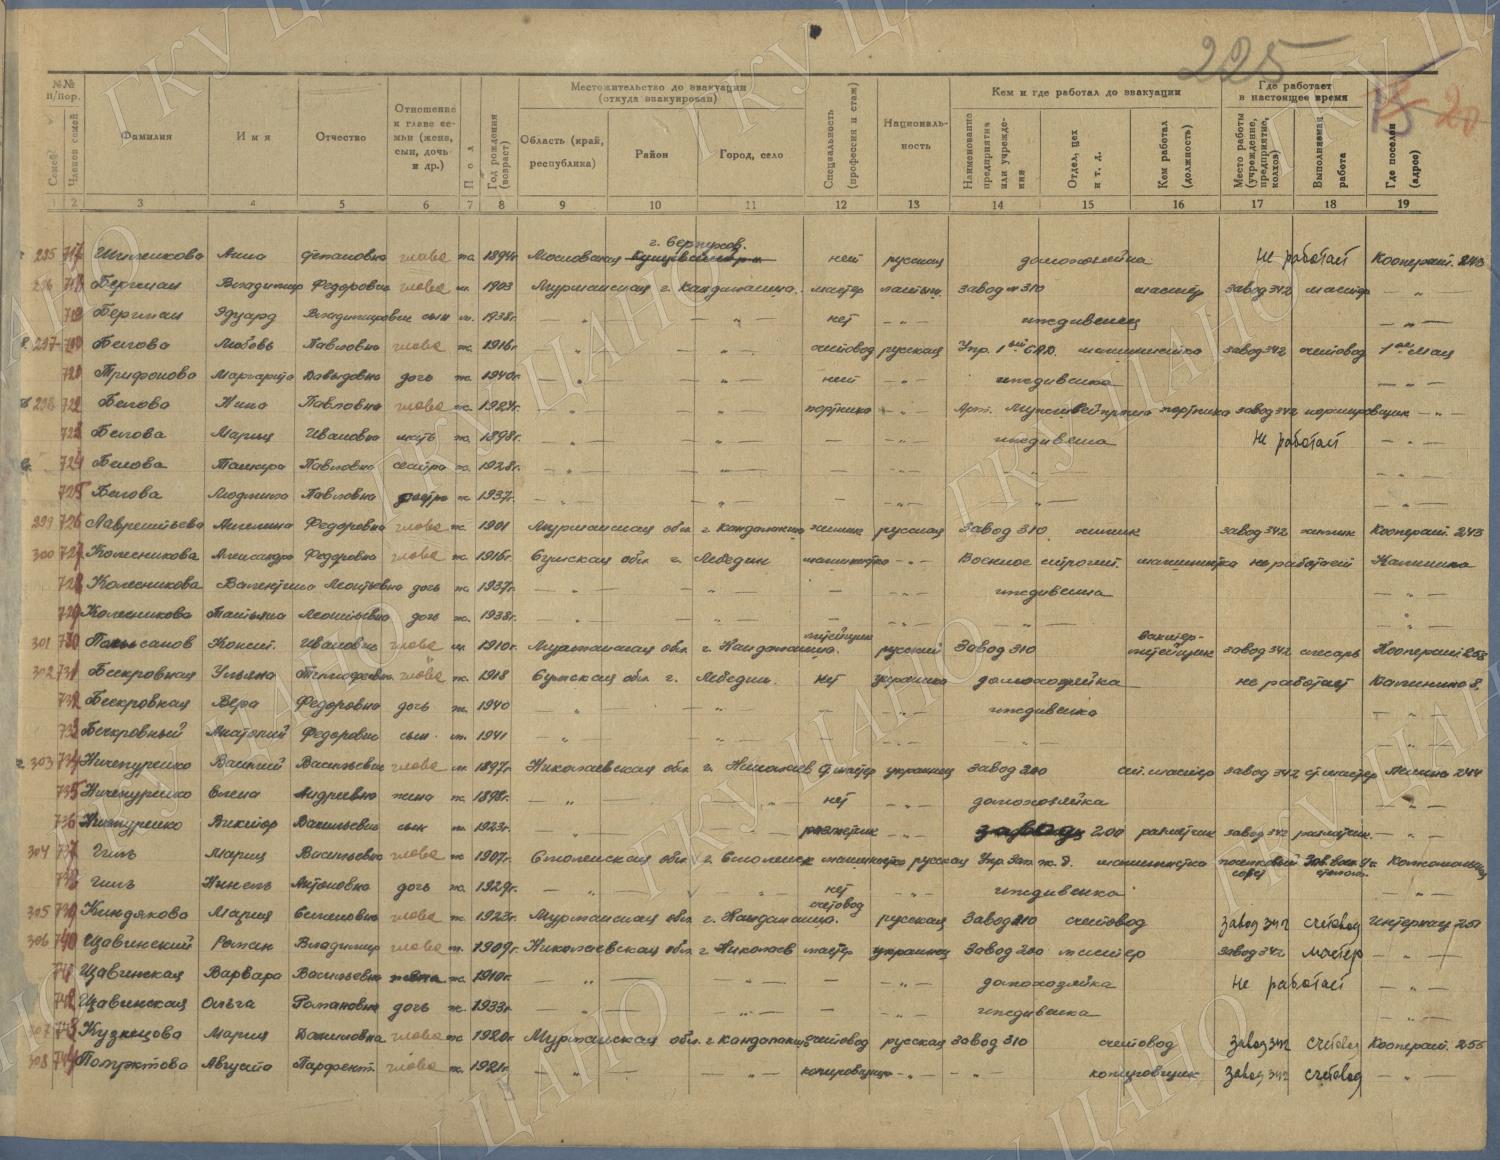 225
15 20
№№ п/пор.
Семей
Членов семей
Фамилия
Имя
Отчество
Отношение к главе семьи (жена, сын, дочь и др.)
Пол
Год рождения (возраст)
Местожительство до эвакуации (откуда эвакуирован)
Область (край, республика)
Район
Город, село
Специальность (профессия и стаж)
Националь-ность
Кем и где работал до эвакуации
Наименование предприятия или учреждения
Отдел, цех и т. д.
Кем работал (должность)
Где работает в настоящее время
Место работы (учреждение, предприятие, колхоз)
Выполняемая работа
Где поселен (адрес)
1 2 3 4 5 6 7 8 9 10 11 12 13 14 15 16 17 18 19
г. Серпухов.
295 717 Анна Степановна глава ж. 1894г Московская нет русская домохозяйка Не работает Кооперат. 243
296 718 Бергман Владимир Федорович глава м. 1903 Мурманская г. Кандалакша. мастер латыш. Завод № 310 мастер завод 342 мастер — „ —
719 Бергман Эдуард Владимирович сын м. 1938г. — „ — — „ — нет — „ — иждивенец — „ —
297 720 Белова Любовь Павловна глава ж. 1916г — „ — — „ — счетовод русская Упр. 1ой машинистка завод 342 счетовод 1ое Мая
721 Трифонова Маргарита Давыдовна дочь ж. 1940г — „ — — „ — нет — „ — иждивенка — „ —
298 722 Белова Нина Павловна глава ж. 1924г. — „ — — „ — портниха — „ — портниха завод 342 нормировщик — „ —
723 Белова Мария Ивановна мать ж. 1898г. — „ — — „ — — — „ — иждивенка Не работает — „ —
724 Белова Тамара Павловна сестра ж. 1928г. — „ — — „ — — — „ — — „ — — „ —
725 Белова Людмила Павловна сестра ж 1937г. — „ — — „ — — — „ — — „ — — „ —
299 726 Лаврентьева Ангелина Федоровна глава ж. 1901 Мурманская обл. г Кандалакша химик русская Завод 310 химик завод 342 химик Кооперат. 243
300 727 Колесникова Александра Федоровна глава ж. 1916г. Сумская обл. г. Лебедин машинистка — „ — Военное строит. машинистка не работает Калинина
728 Колесникова Валентина Леонтьевна дочь ж. 1937г. — „ — — „ — — — „ — иждивенка — „ —
729 Колесникова Татьяна Леонтьевна дочь ж. 1938г. — „ — — „ — — — „ — — „ — — „ —
301 730 Конст. Иванович глава м. 1910г. Мурманская обл. г. Кандалакша. литейщик русский Завод 310 литейщик завод 342 слесарь Кооперат 253
302 731 Бескровная Ульяна Тимофеевна глава ж. 1918 Сумская обл. г. Лебедин. нет украинка домохозяйка не работает Калинина 8.
732 Бескровная Вера Федоровна дочь ж. 1940 — „ — — „ — — — „ — иждивенка — „ —
733 Бескровный Анатолий Федорович сын м. 1941 — „ — — „ — — — „ — — „ — — „ —
303 734 Ничепуренко Василий Васильевич глава м. 1897г. Николаевская обл. г. Николаев мастер украинец завод 200 ст. мастер завод 342 ст. мастер Ленина 244
735 Ничепуренко Елена Андреевна жена ж. 1898г. — „ — — „ — нет — „ — домохозяйка — „ —
736 Ничепуренко Виктор Васильевич сын м 1923г. — „ — — „ — разметчик — „ — завод 200 разметчик завод 342 разметчик. — „ —
304 737 Гиль Мария Васильевна глава ж. 1907г. Смоленская обл. г. Смоленск машинистка русская Упр. Зап. ж. д. машинистка поселковый совет
738 Гиль Нинель Антоновна дочь ж. 1929г. — „ — — „ — нет — „ — иждивенка — „ —
305 739 Киндякова Мария Семеновна глава ж. 1923г. Мурманская обл. г. Кандалакша. счетовод русская Завод 310 счетовод Завод 342 счетовод Интернац 251
306 740 Щавинский Роман Владимир. глава м. 1909г. Николаевская обл. г Николаев мастер украинец Завод 200 мастер завод 342 мастер — „ —
741 Щавинская Варвара Васильевна жена ж. 1910г. — „ — — „ — — — „ — домохозяйка Не работает — „ —
742 Щавинская Ольга Романовна дочь ж. 1933г. — „ — — „ — — — „ — иждивенка — „ —
307 743 Кузнецова Мария Даниловна глава ж 1920г. Мурманская обл. г Кандалакша счетовод русская Завод 310 счетовод Завод 342 счетовод Кооперат. 255
308 744 Августа Парфент. глава ж. 1921г. — „ — — „ — копировщица — „ — — „ — копировщик Завод 342 счетовод — „ —
ГКУ ЦАНО